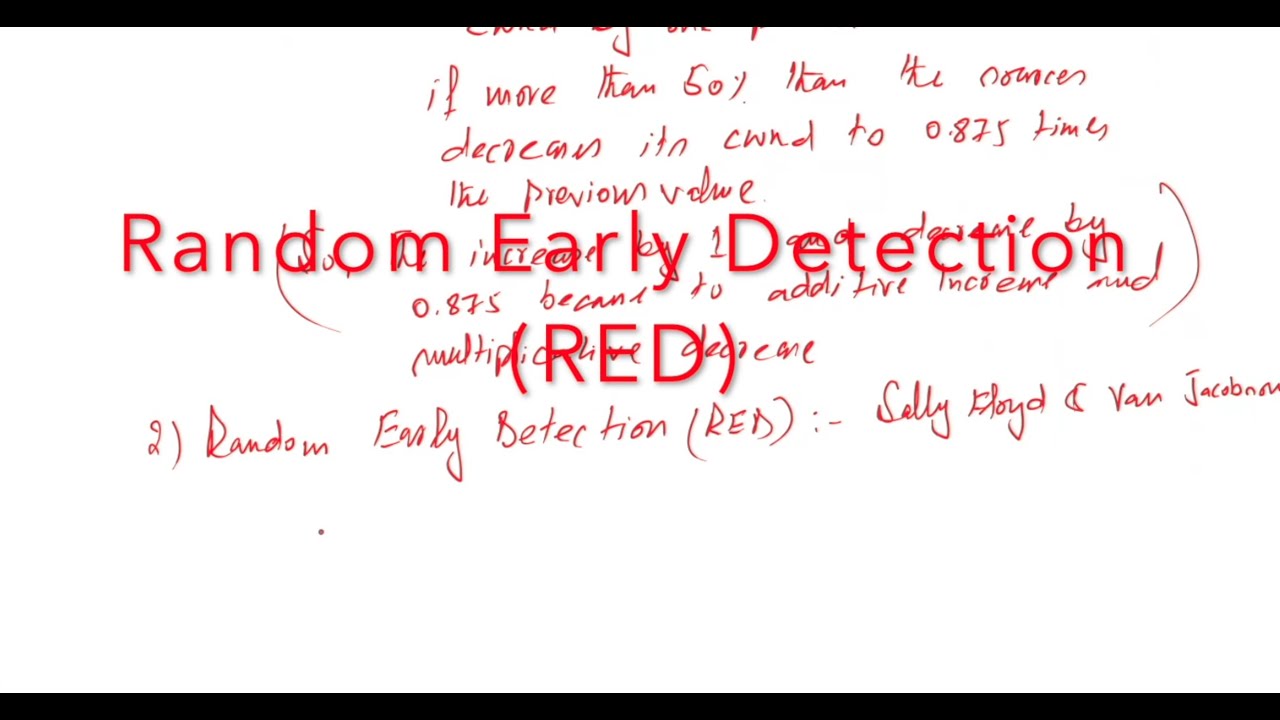 by one
if more than 50% than the sources
decreases its cwnd to 0.875 times
the previous value.
Random Early Detection
(RED)
(So, The increase by 1 and decrease by
0.875 because to additive increase and
multiplicative decrease
2) Random Early Detection (RED) :- Sally Floyd & Van Jacobson